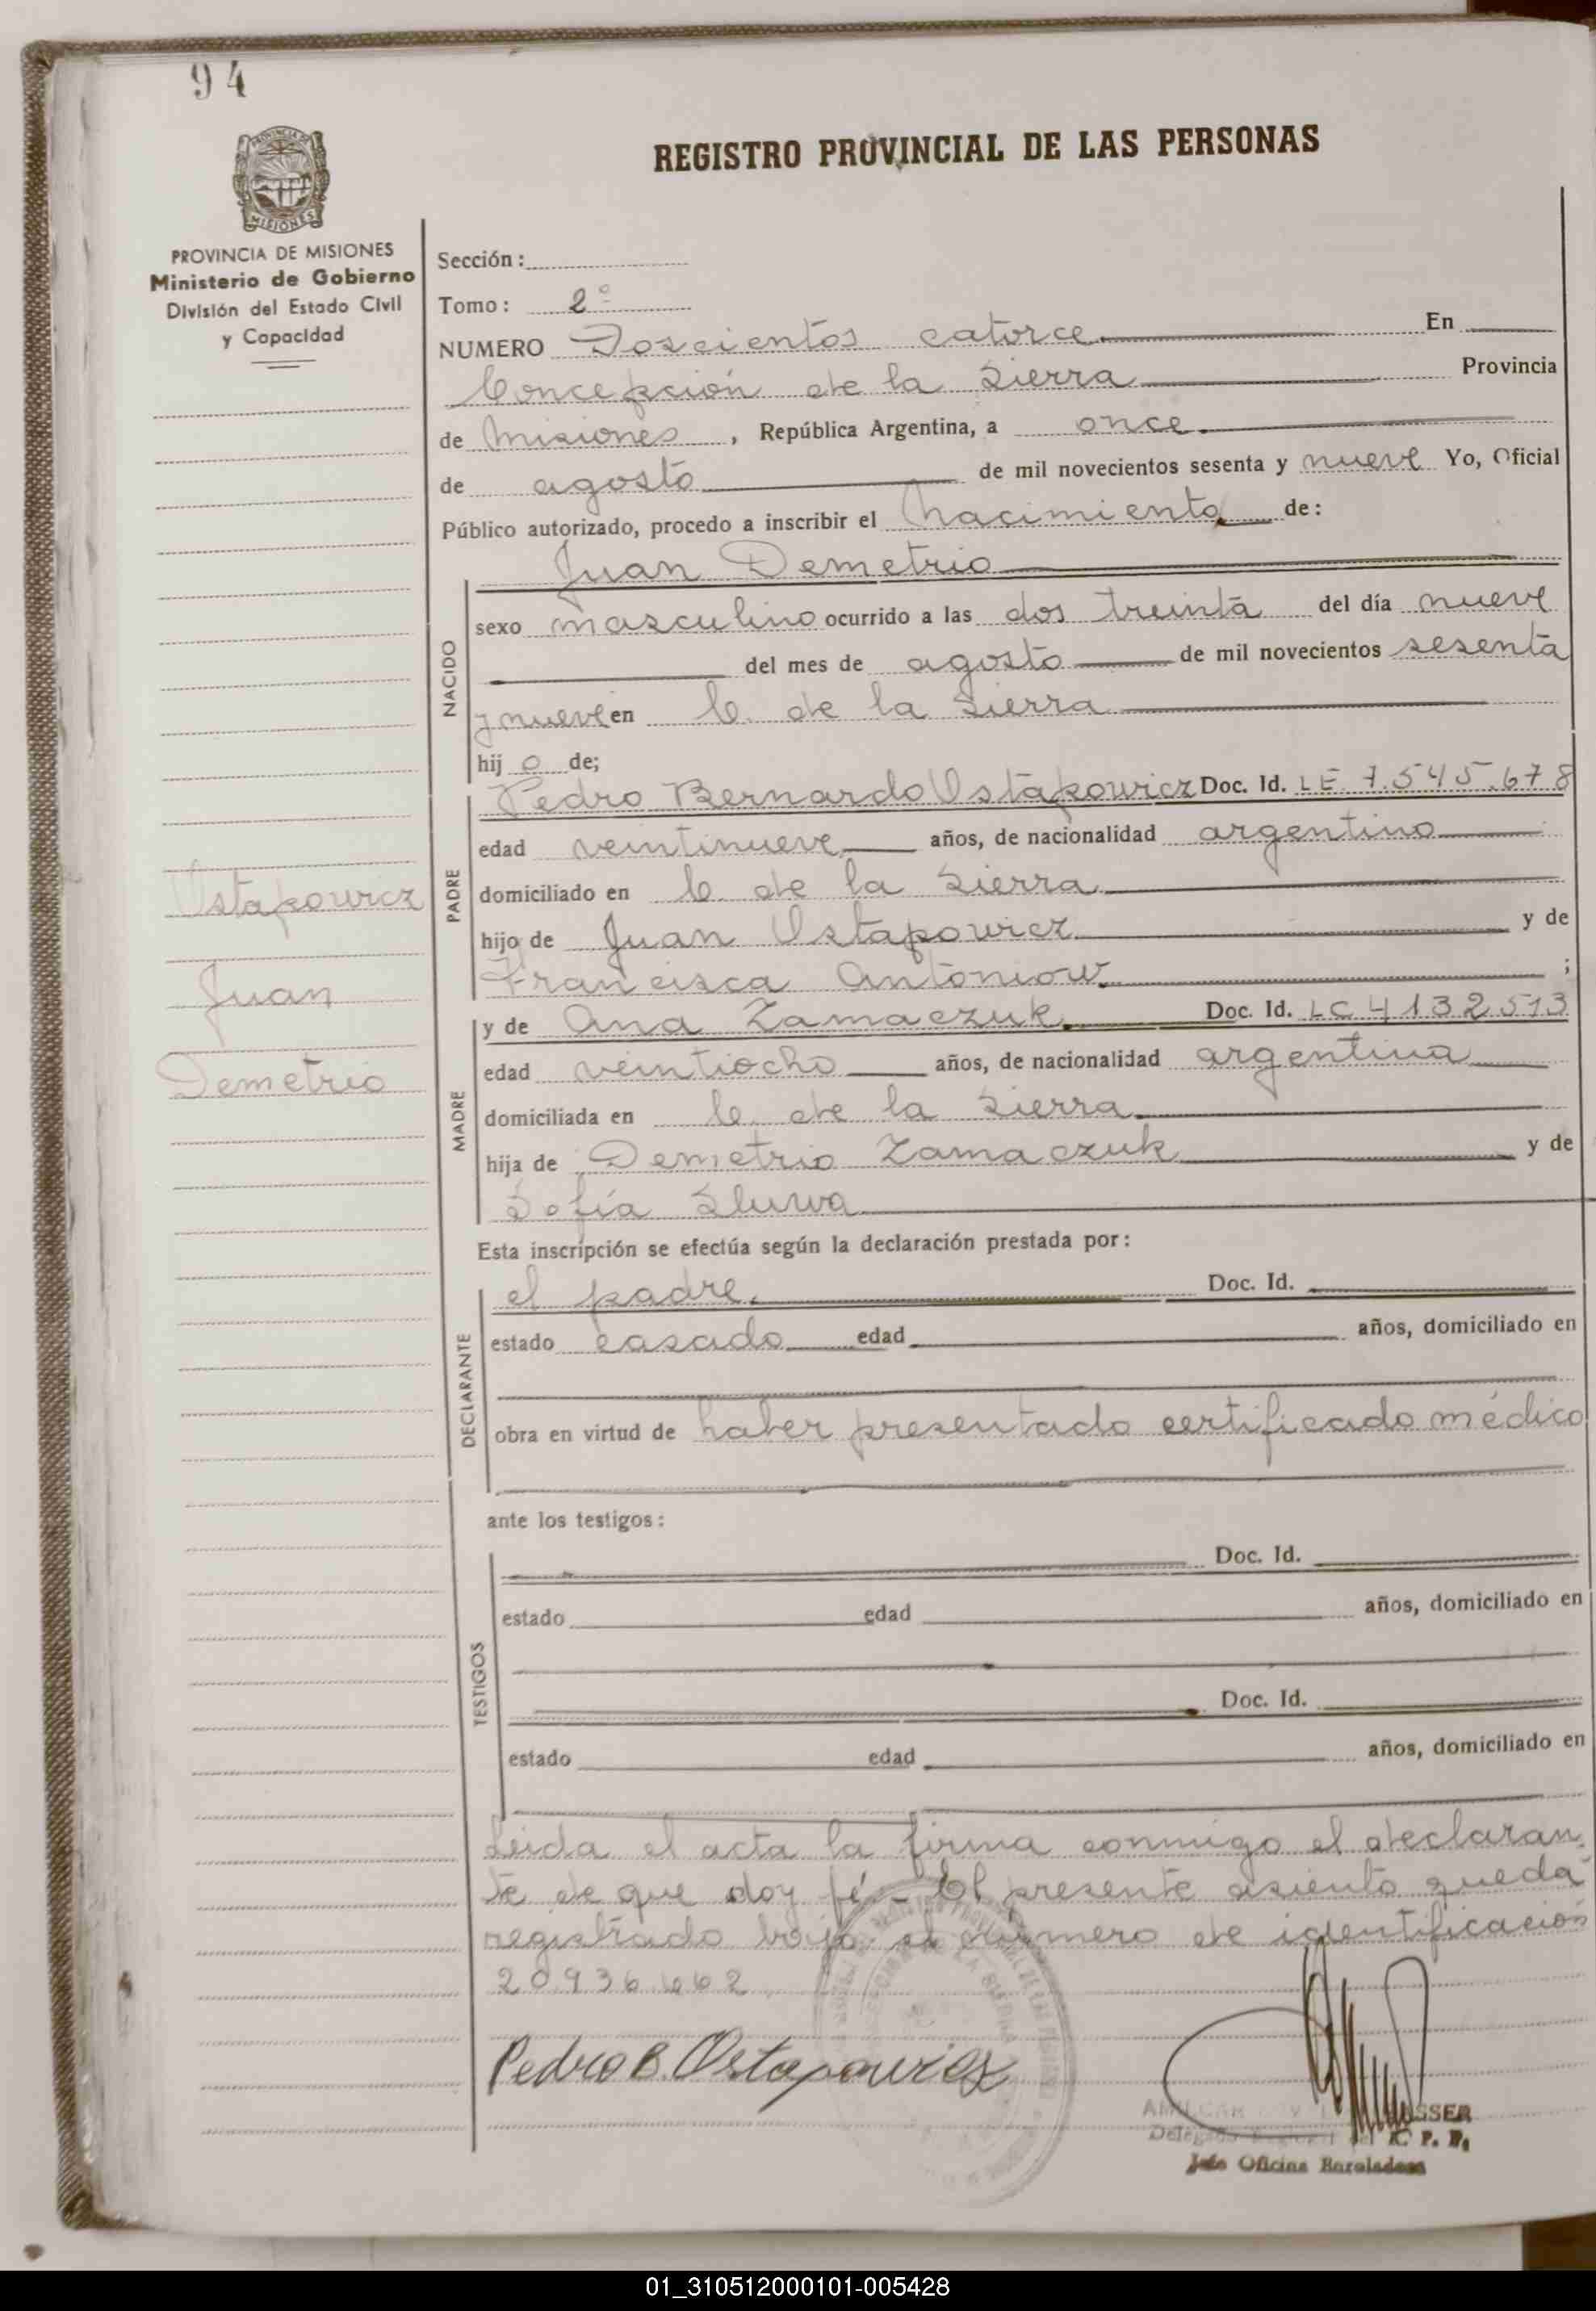 94
PROVINCIA DE MISIONES
Ministerio de Gobierno
División del Estado Civil
y Capacidad
Ostapowicz
Juan
Demetrio
REGISTRO PROVINCIAL DE LAS PERSONAS
Sección:
Tomo: 2º
NUMERO Doscientos catorce En
Concepción de la Sierra Provincia
de Misiones, República Argentina, a once
de agosto de mil novecientos sesenta y nueve Yo, Oficial
Público autorizado, procedo a inscribir el Nacimiento de:
Juan Demetrio
NACIDO
sexo masculino ocurrido a las dos treinta del día nueve
del mes de agosto de mil novecientos sesenta
y nueve en C. de la Sierra
hijo de;
PADRE
Pedro Bernardo Ostapowicz Doc. Id. LE 7.545.678
edad veintinueve años, de nacionalidad argentino
domiciliado en C. de la Sierra
hijo de Juan Ostapowicz y de
Francisca Antoniow ;
MADRE
y de Ana Zamaczuk Doc. Id. LC 4132513
edad veintiocho años, de nacionalidad argentina
domiciliada en C. de la Sierra
hija de Demetrio Zamaczuk y de
Sofía Sluwa
Esta inscripción se efectúa según la declaración prestada por:
DECLARANTE
el padre. Doc. Id.
estado casado edad años, domiciliado en
obra en virtud de haber presentado certificado médico
ante los testigos:
TESTIGOS
Doc. Id.
estado edad años, domiciliado en
Doc. Id.
estado edad años, domiciliado en
Leida el acta la firma conmigo el declaran-
te de que doy fé - El presente asiento queda
registrado bajo el número de identificación
20.936.462
Pedro B. Ostapowicz
Jefe Oficina
01_310512000101-005428